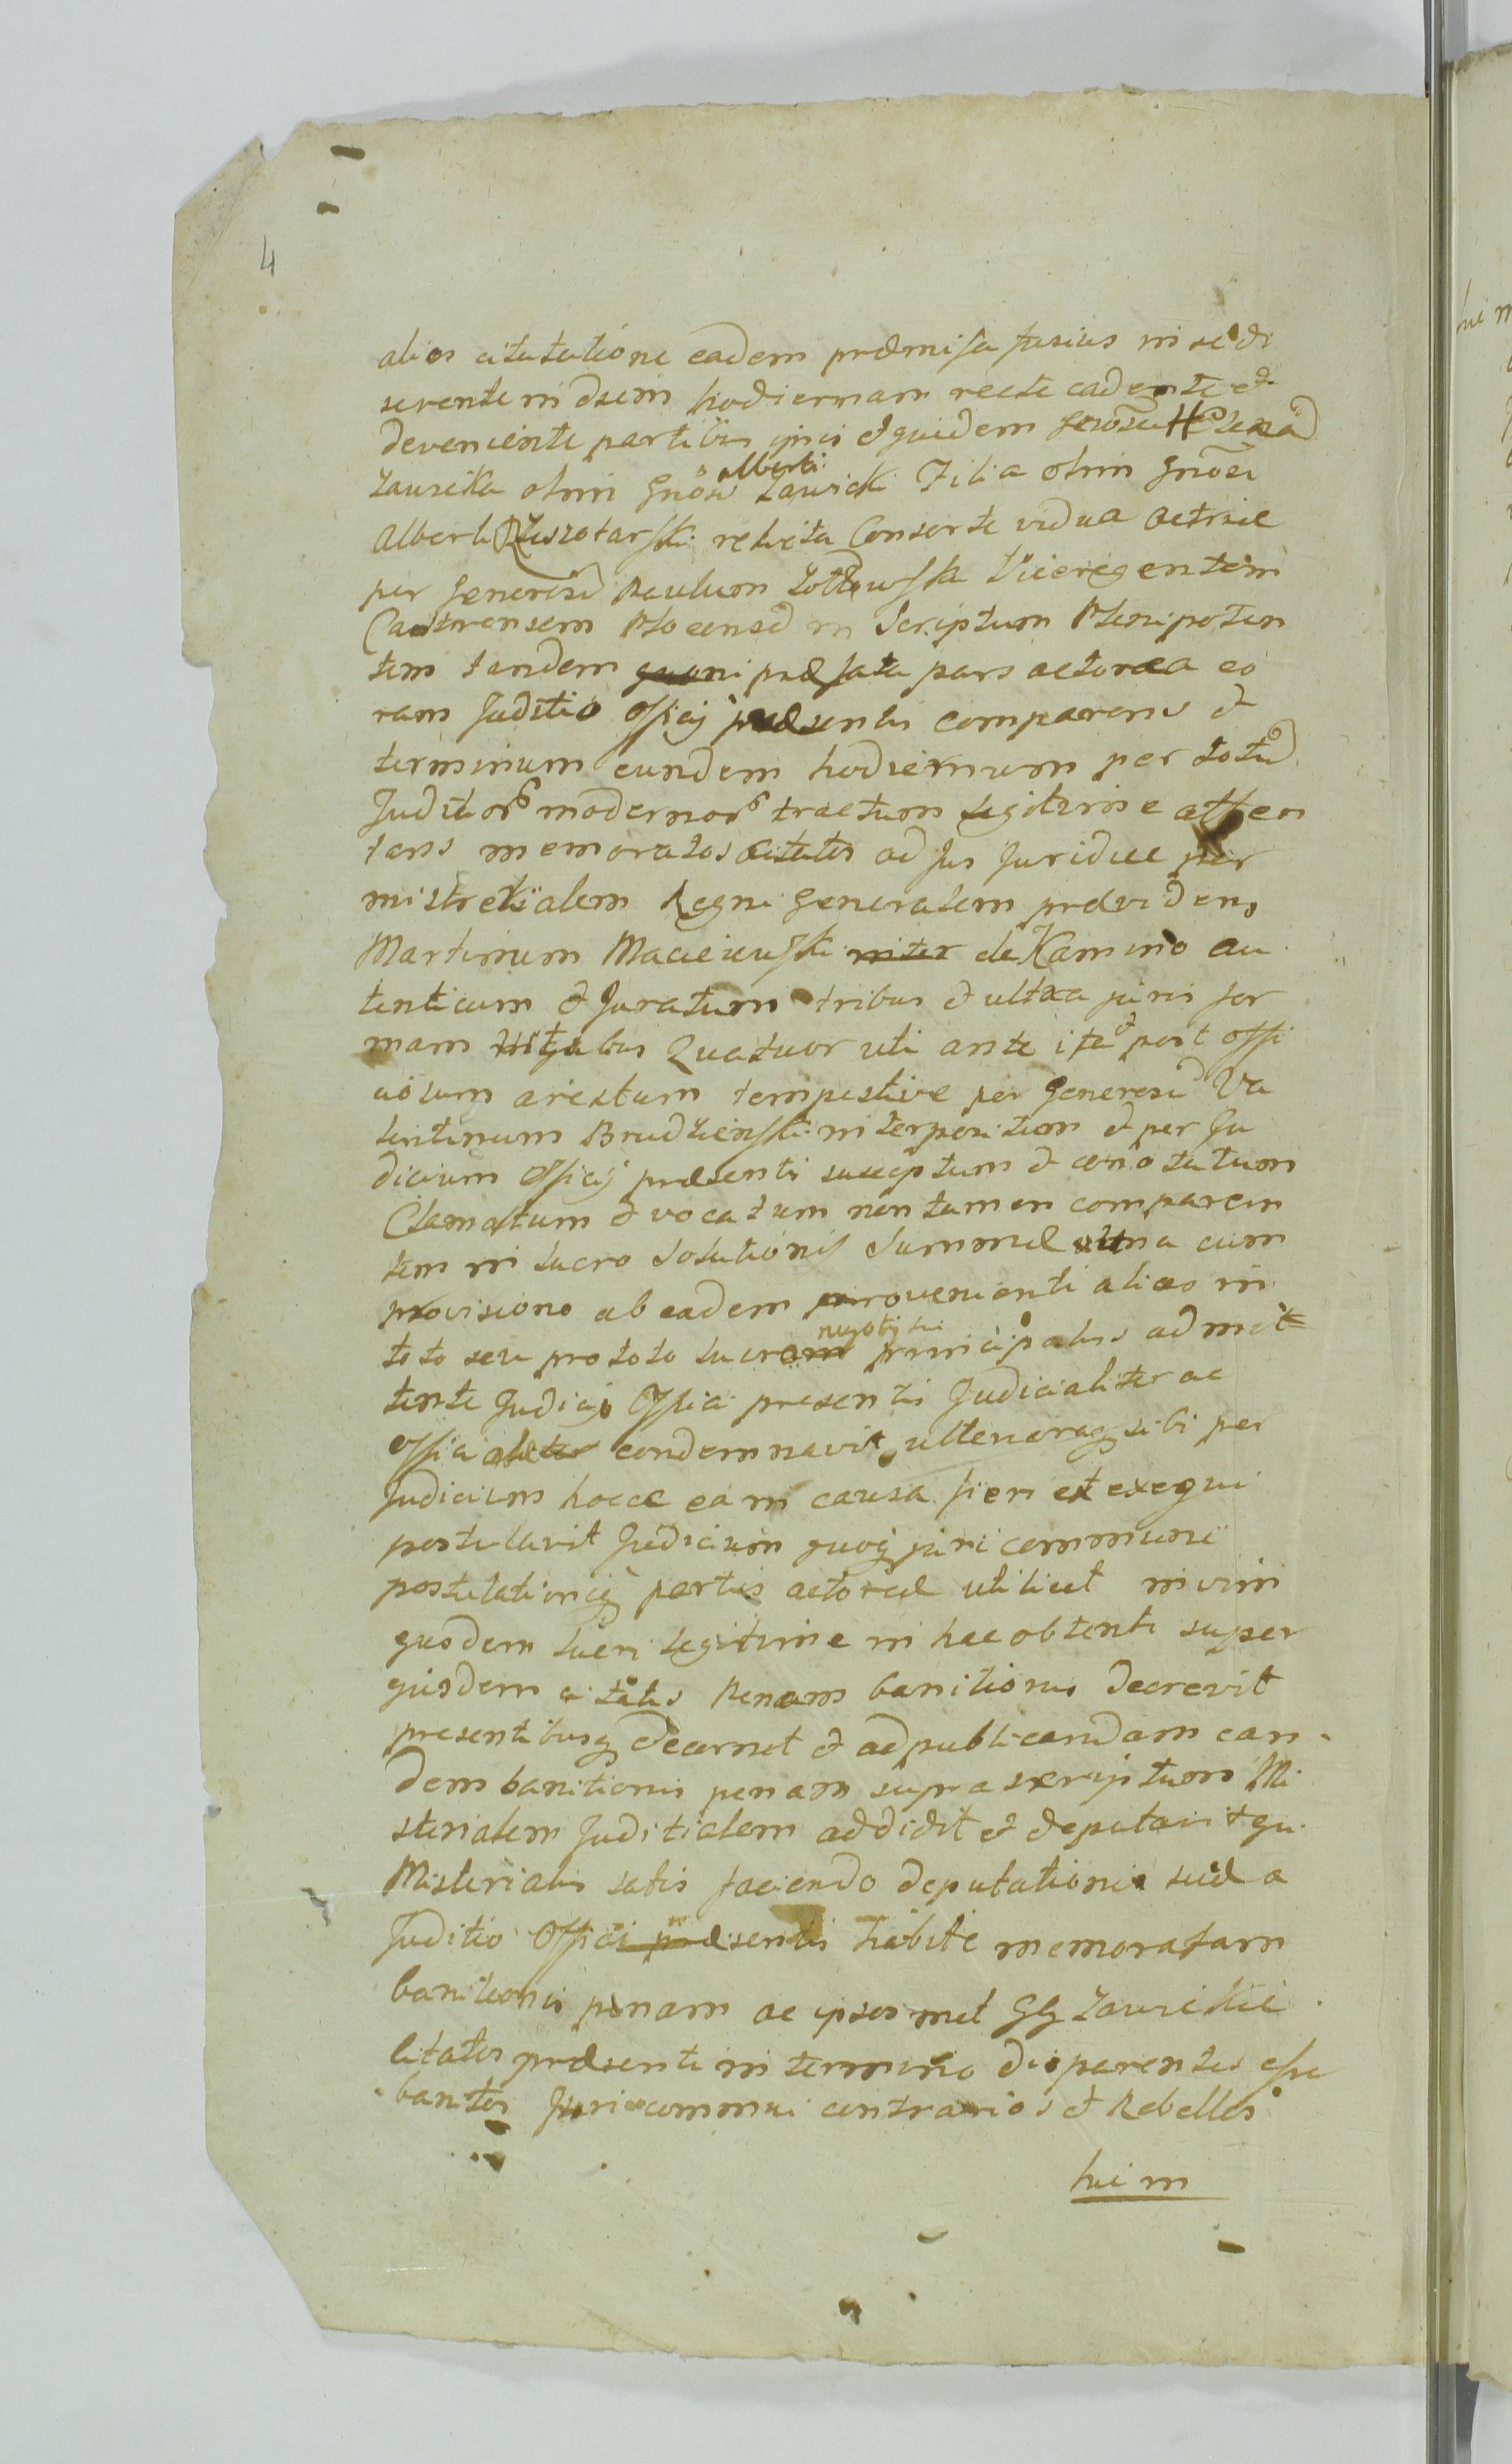 4
alias citatione eadem præmissa fusius in se di
serente in diem hodiernam recte cadente et
deveniente partibus ipsis et quidem Generosa Helena
Zawicka olim Gnosi Alberti Zawicki Filia olim Gnosi
Alberti relicta Consorte vidua actrice
per Generosū Paulum Vicesgerentem
Castrensem Plocensē in Scriptum Plenipoten
tem tandem præfata pars actorea co
ram Juditio Officij præsentis comparens et
terminum eundem hodiernum per totū
Juditior modernor tractum legitime atten
tans memoratos citatos ad Jus Juridice per
ministerialem Regni Generalem providens
Martinum Macieiewski de Kamino au
tenticum et Juratum tribus et ultra juris for
mam vicibus Quatuor uti ante ita et post offi
ciosum arestum tempestive per Generosū Va
lentinum Brudzienski interpositum et per Ju
dicium Officij præsentis susceptum et connotatum
Clamatum et vocatum non tamen comparen
tem in lucro Solutionis Summæ una cum
provisione ab eadem provenienti alias in
toto seu pro toto lucro negotij sui principalis admit
tente Judicij Officij presentis Judicialiter ac
condemnavit, ulterioraq sibi per
Judicium hocce ea in causa fieri et exequi
postulavit Judicium quoq juri communi
postulationiq partis actoreæ in vim
quodem lucri legitime in hac obtenti super
quisdem citatis Penam banitionis decrevit
presentibusq decernit et ad publicandam ean
dem banitionis penam supra scriptum Mi
sterialem Juditialem addidit et deputavit qui
Misterialis satis faciendo deputationi suæ a
Juditio Officii præsentis habite memoratam
banitionis penam ac ipsos met GG Zawickie
citatos præsenti in termino disparentes esse
banitos Juri communi contrarios et Rebelles
hui m